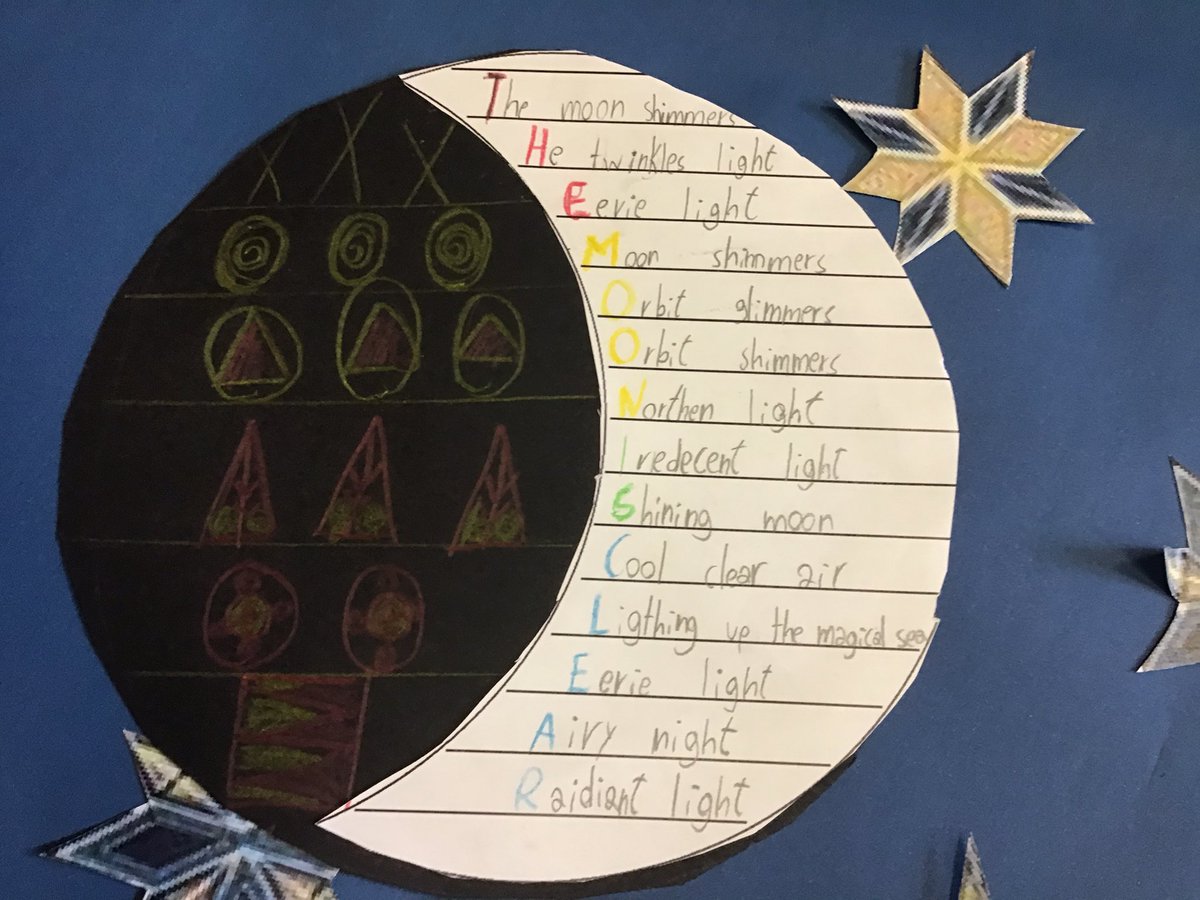 The moon shimmers
He twinkles light
Eerie light
Moon shimmers
Orbit glimmers
Orbit shimmers
Northen light
Iredecent light
Shining moon
Cool clear air
Ligthing up the magical sea
Eerie light
Airy night
Raidiant light